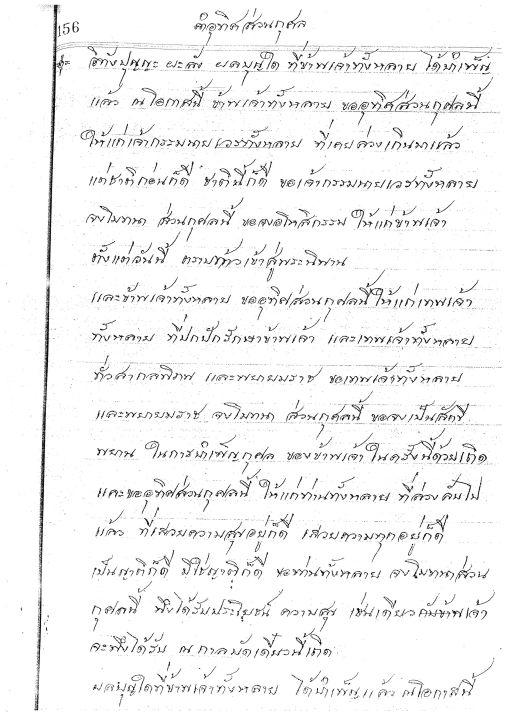 156
คำอุทิศส่วนกุศล
อิทังปุญญะ ผะลัง ผลบุญใด ที่ข้าพเจ้าทั้งหลาย ได้บำเพ็ญ
แล้ว ณ โอกาสนี้ ข้าพเจ้าทั้งหลาย ขออุทิศส่วนกุศลนี้
ให้แก่เจ้ากรรมนายเวรทั้งหลาย ที่เคยล่วงเกินมาแล้ว
แต่ชาติก่อนก็ดี ชาตินี้ก็ดี ขอเจ้ากรรมนายเวรทั้งหลาย
จงโมทนา ส่วนกุศลนี้ ขอจงอโหสิกรรม ให้แก่ข้าพเจ้า
ตั้งแต่วันนี้ ตราบเท้าเข้าสู่พระนิพาน
และข้าพเจ้าทั้งหลาย ขออุทิศส่วนกุศลนี้ ให้แก่เทพเจ้า
ทั้งหลาย ที่ปกปักรักษาข้าพเจ้า และเทพเจ้าทั้งหลาย
ทั่วสากลพิภพ และพยายมราช ขอเทพเจ้าทั้งหลาย
และพยายมราช จงโมทนา ส่วนกุศลนี้ ขอจงเป็นสักขี
พยาน ในการบำเพ็ญกุศล ของข้าพเจ้า ในครั้งนี้ด้วยเถิด
และขออุทิศส่วนกุศลนี้ ให้แก่ท่านทั้งหลาย ที่ล่วงลับไป
แล้ว ที่เสวยความสุขอยู่ก็ดี เสวยความทุกอยู่ก็ดี
เป็นญาติก็ดี มิใช่ญาติก็ดี ขอท่านทั้งหลาย จงโมทนาส่วน
กุศลนี้ พึงได้รับประโยชน์ ความสุข เช่นเดียวกับข้าพเจ้า
จะพึงได้รับ ณ กาลบัดเดี๋ยวนี้เถิด
ผลบุญใดที่ข้าพเจ้าทั้งหลาย ได้บำเพ็ญแล้ว ณ โอกาสนี้